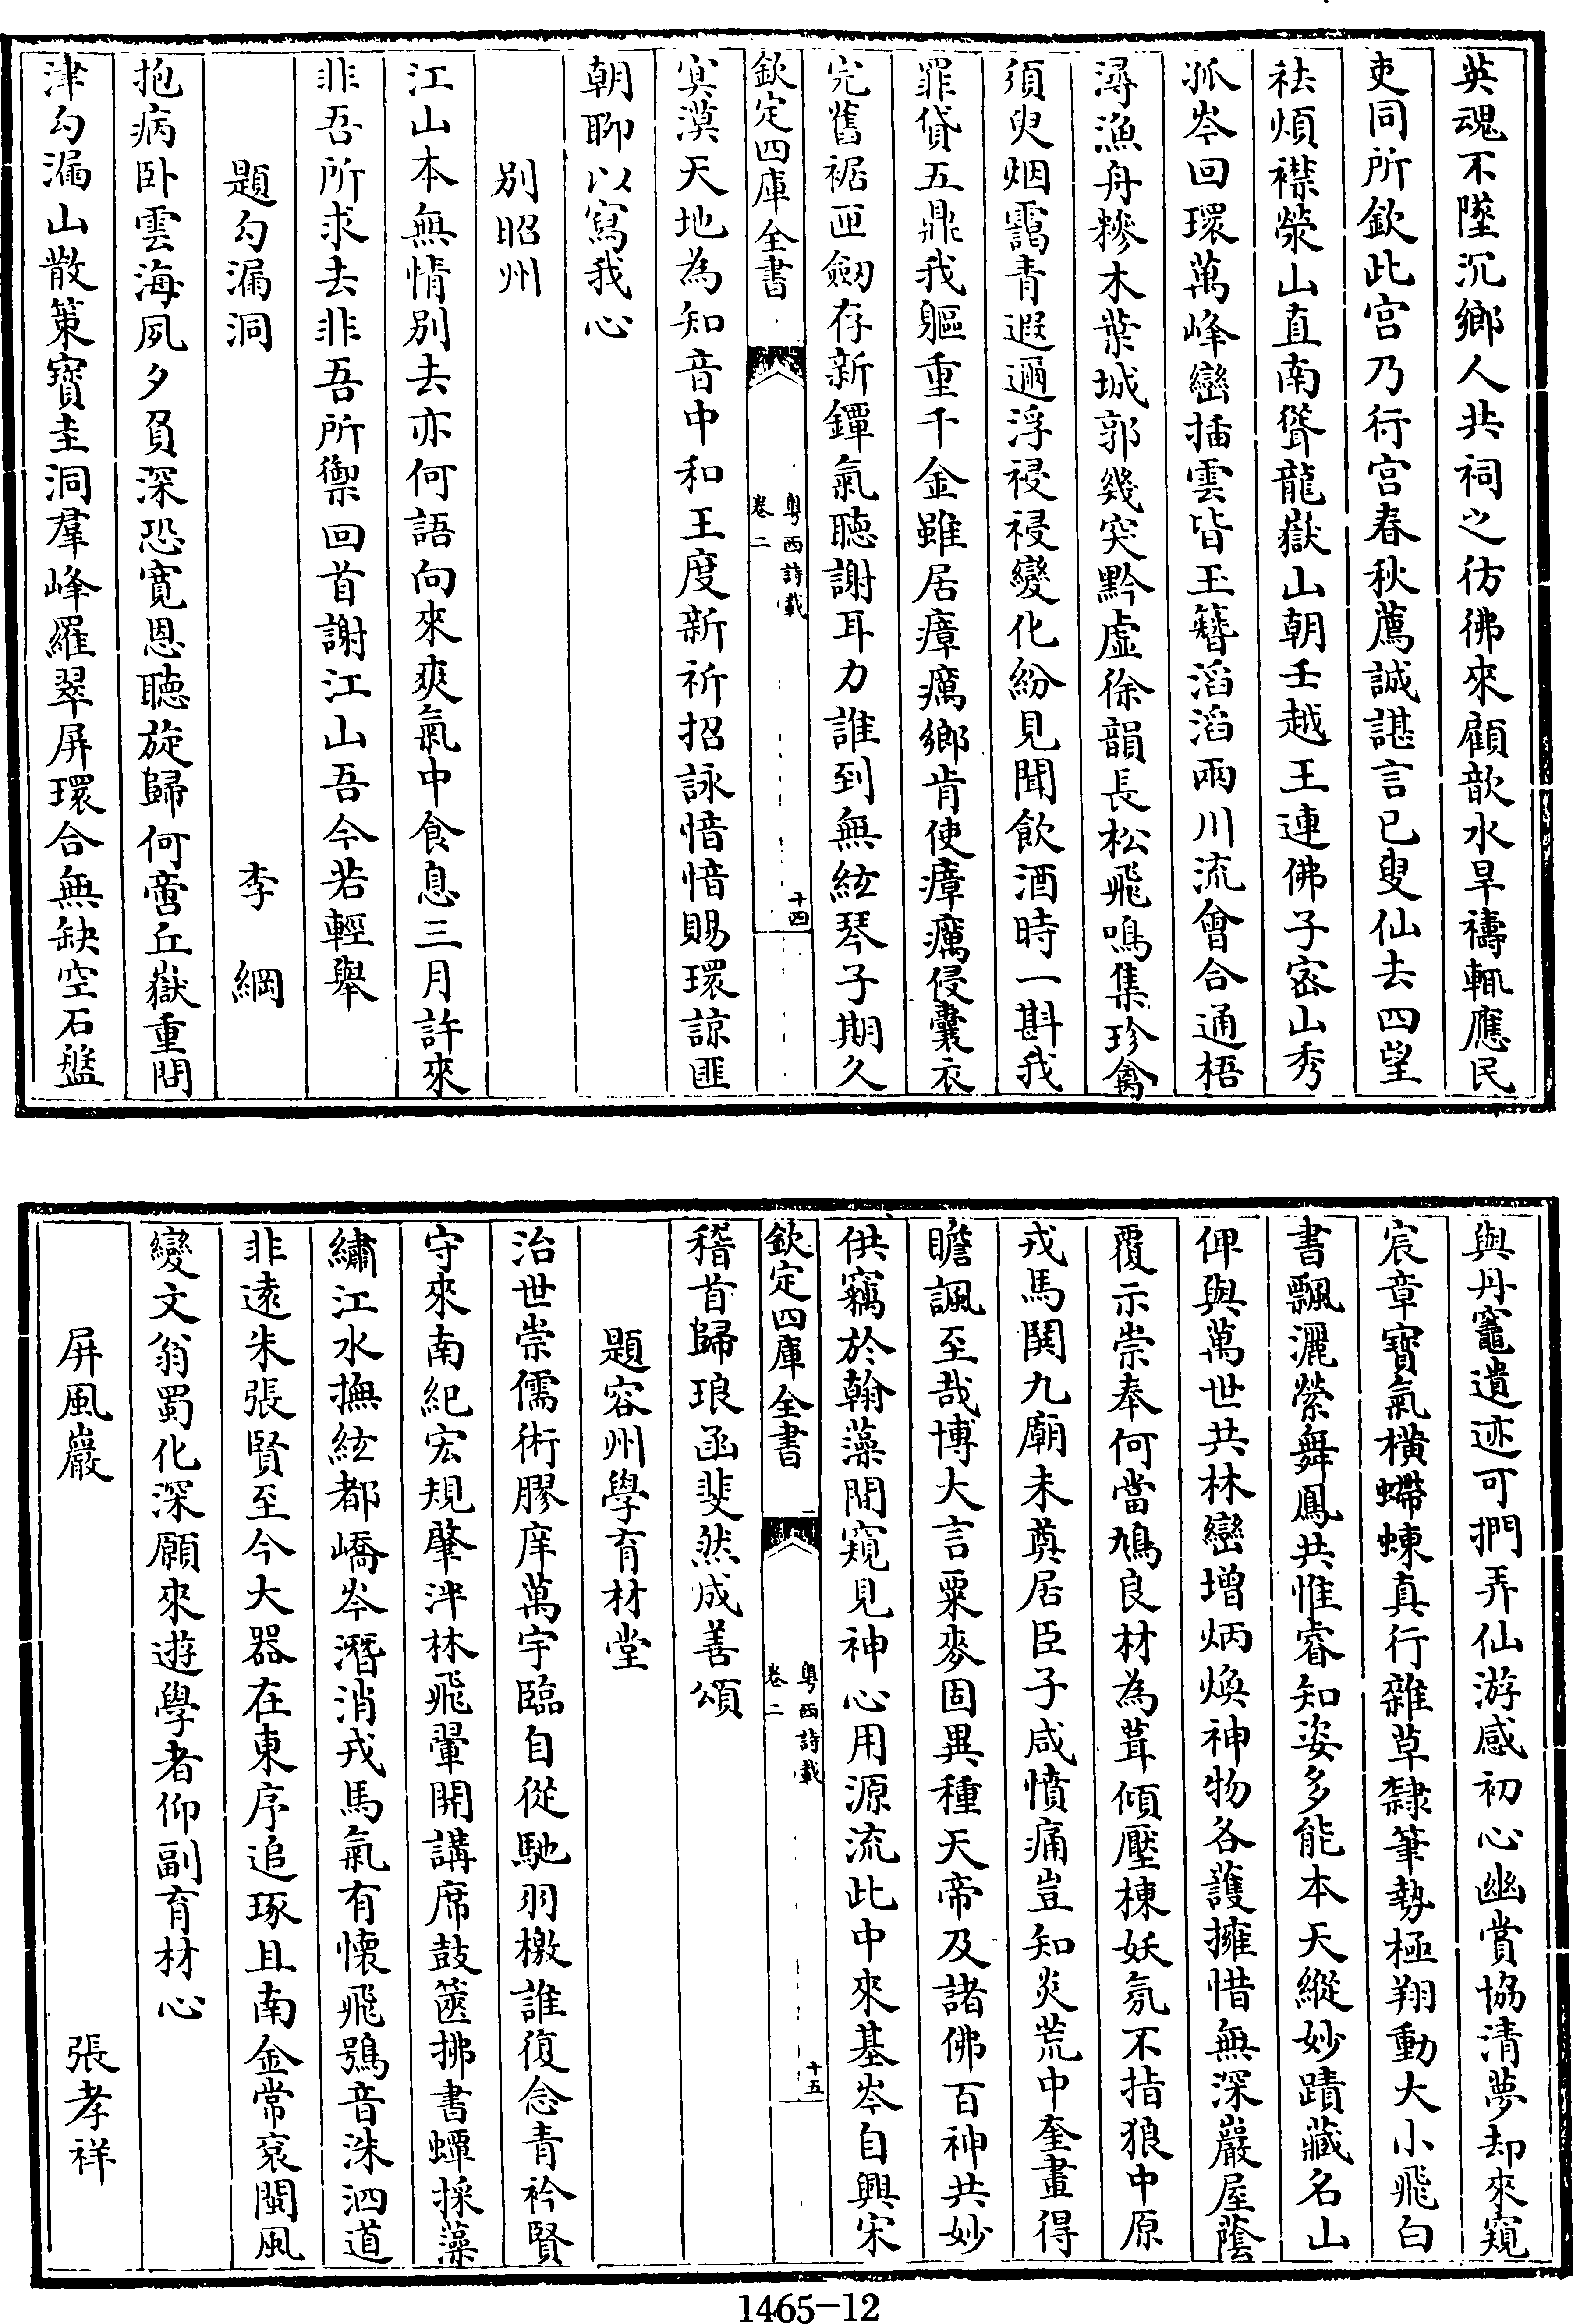 英魂不墜沉鄉人共祠之彷彿來顧歆水旱禱輒應民
吏同所欽此宫乃行宫春秋薦誠諶言已叟仙去四望
袪煩襟滎山直南聳龍嶽山朝壬越王連佛子宻山秀
孤岑回環萬峰巒插雲皆玉簪滔滔兩川流會合通梧
潯漁舟糝木葉城郭幾突黔虛徐韻長松飛鳴集珍禽
須臾烟靄青遐邇浮祲祲變化紛見聞飲酒時一斟我
罪貸五鼎我軀重千金雖居瘴癘鄉肯使瘴癘侵囊衣
完舊裾匣劒存新鐔氣聴謝耳力誰到無絃琴子期久
欽定四庫全書
粤西詩載
卷二
十四
寞漠天地為知音中和王度新祈招詠愔愔賜環諒匪
朝聊以寫我心
别昭州
江山本無情别去亦何語向來爽氣中食息三月許來
非吾所求去非吾所禦回首謝江山吾今若輕舉
題勾漏洞
李綱
抱病卧雲海夙夕負深恐寛恩聴旋歸何啻丘嶽重問
津勾漏山散策寶圭洞羣峰羅翠屏環合無缺空石盤
與丹竈遺迹可捫弄仙游感初心幽賞協清夢却來窺
宸章寶氣横螮蝀真行雜草隸筆勢極翔動大小飛白
書飄灑縈舞鳳共惟睿知姿多能本天縱妙蹟藏名山
俾與萬世共林巒增炳煥神物各護擁惜無深巖屋蔭
覆示崇奉何當鳩良材為葺傾壓棟妖氛不指狼中原
戎馬鬨九廟未奠居臣子咸憤痛豈知炎荒中奎畫得
瞻諷至哉博大言粟麥固異種天帝及諸佛百神共妙
供竊於翰藻間窺見神心用源流此中來基岑自興宋
欽定四庫全書
粤西詩載
卷二
十五
稽首歸琅函斐然成善頌
題容州學育材堂
治世崇儒術膠庠萬宇臨自從馳羽檄誰復念青衿賢
守來南紀宏規肇泮林飛翬開講席鼓篋拂書蟫採藻
繡江水撫絃都嶠岑潛消戎馬氣有懷飛鴞音洙泗道
非遠朱張賢至今大器在東序追琢且南金常衮閩風
變文翁蜀化深願來遊學者仰副育材心
屏風巖
張孝祥
1465-12